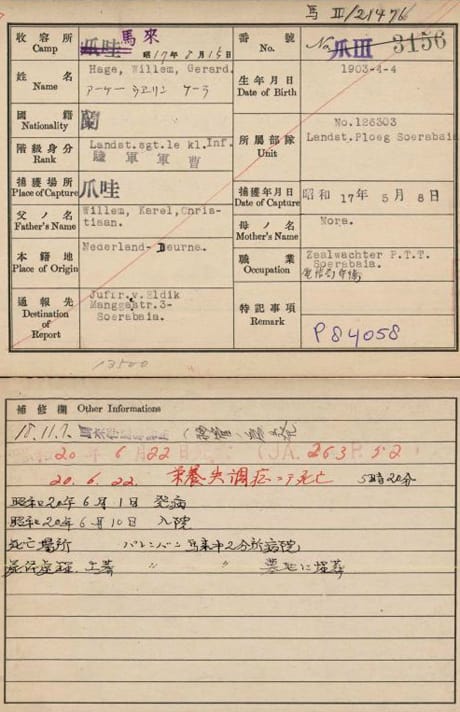 馬 III/21476
收容所 Camp 爪哇 馬來
昭 17年 8月 15日
番號 No. No 爪III 3156
姓名 Name Hage, Willem, Gerard.
生年月日 Date of Birth 1903-4-4
國籍 Nationality 蘭
階級身分 Rank Landst.sgt.1e kl.Inf.
陸軍軍曹
所屬部隊 Unit No.126303
Landst.Ploeg Soerabaia
捕獲場所 Place of Capture 爪哇
捕獲年月日 Date of Capture 昭和 17年 3月 8日
父ノ名 Father's Name Willem, Karel, Chris-
tiaan.
母ノ名 Mother's Name Nora.
本籍地 Place of Origin Nederland- Deurne.
職業 Occupation Zealwachter P.T.T.
Soerabaia.
通報先 Destination of Report Juffr.v.Eldik
Manggastr.3-
Soerabaia.
特記事項 Remark P84058
13500
補修欄 Other Informations
18.11.7.
20年 6月 22日 (JA. 263P. 52)
20. 6. 22. 栄養失調症ニテ死亡 5時20分
昭和20年6月1日 発病
昭和20年6月10日 入院
死亡場所 パレンバン馬来第2分所病院
土葬 〃 〃 墓地に埋葬